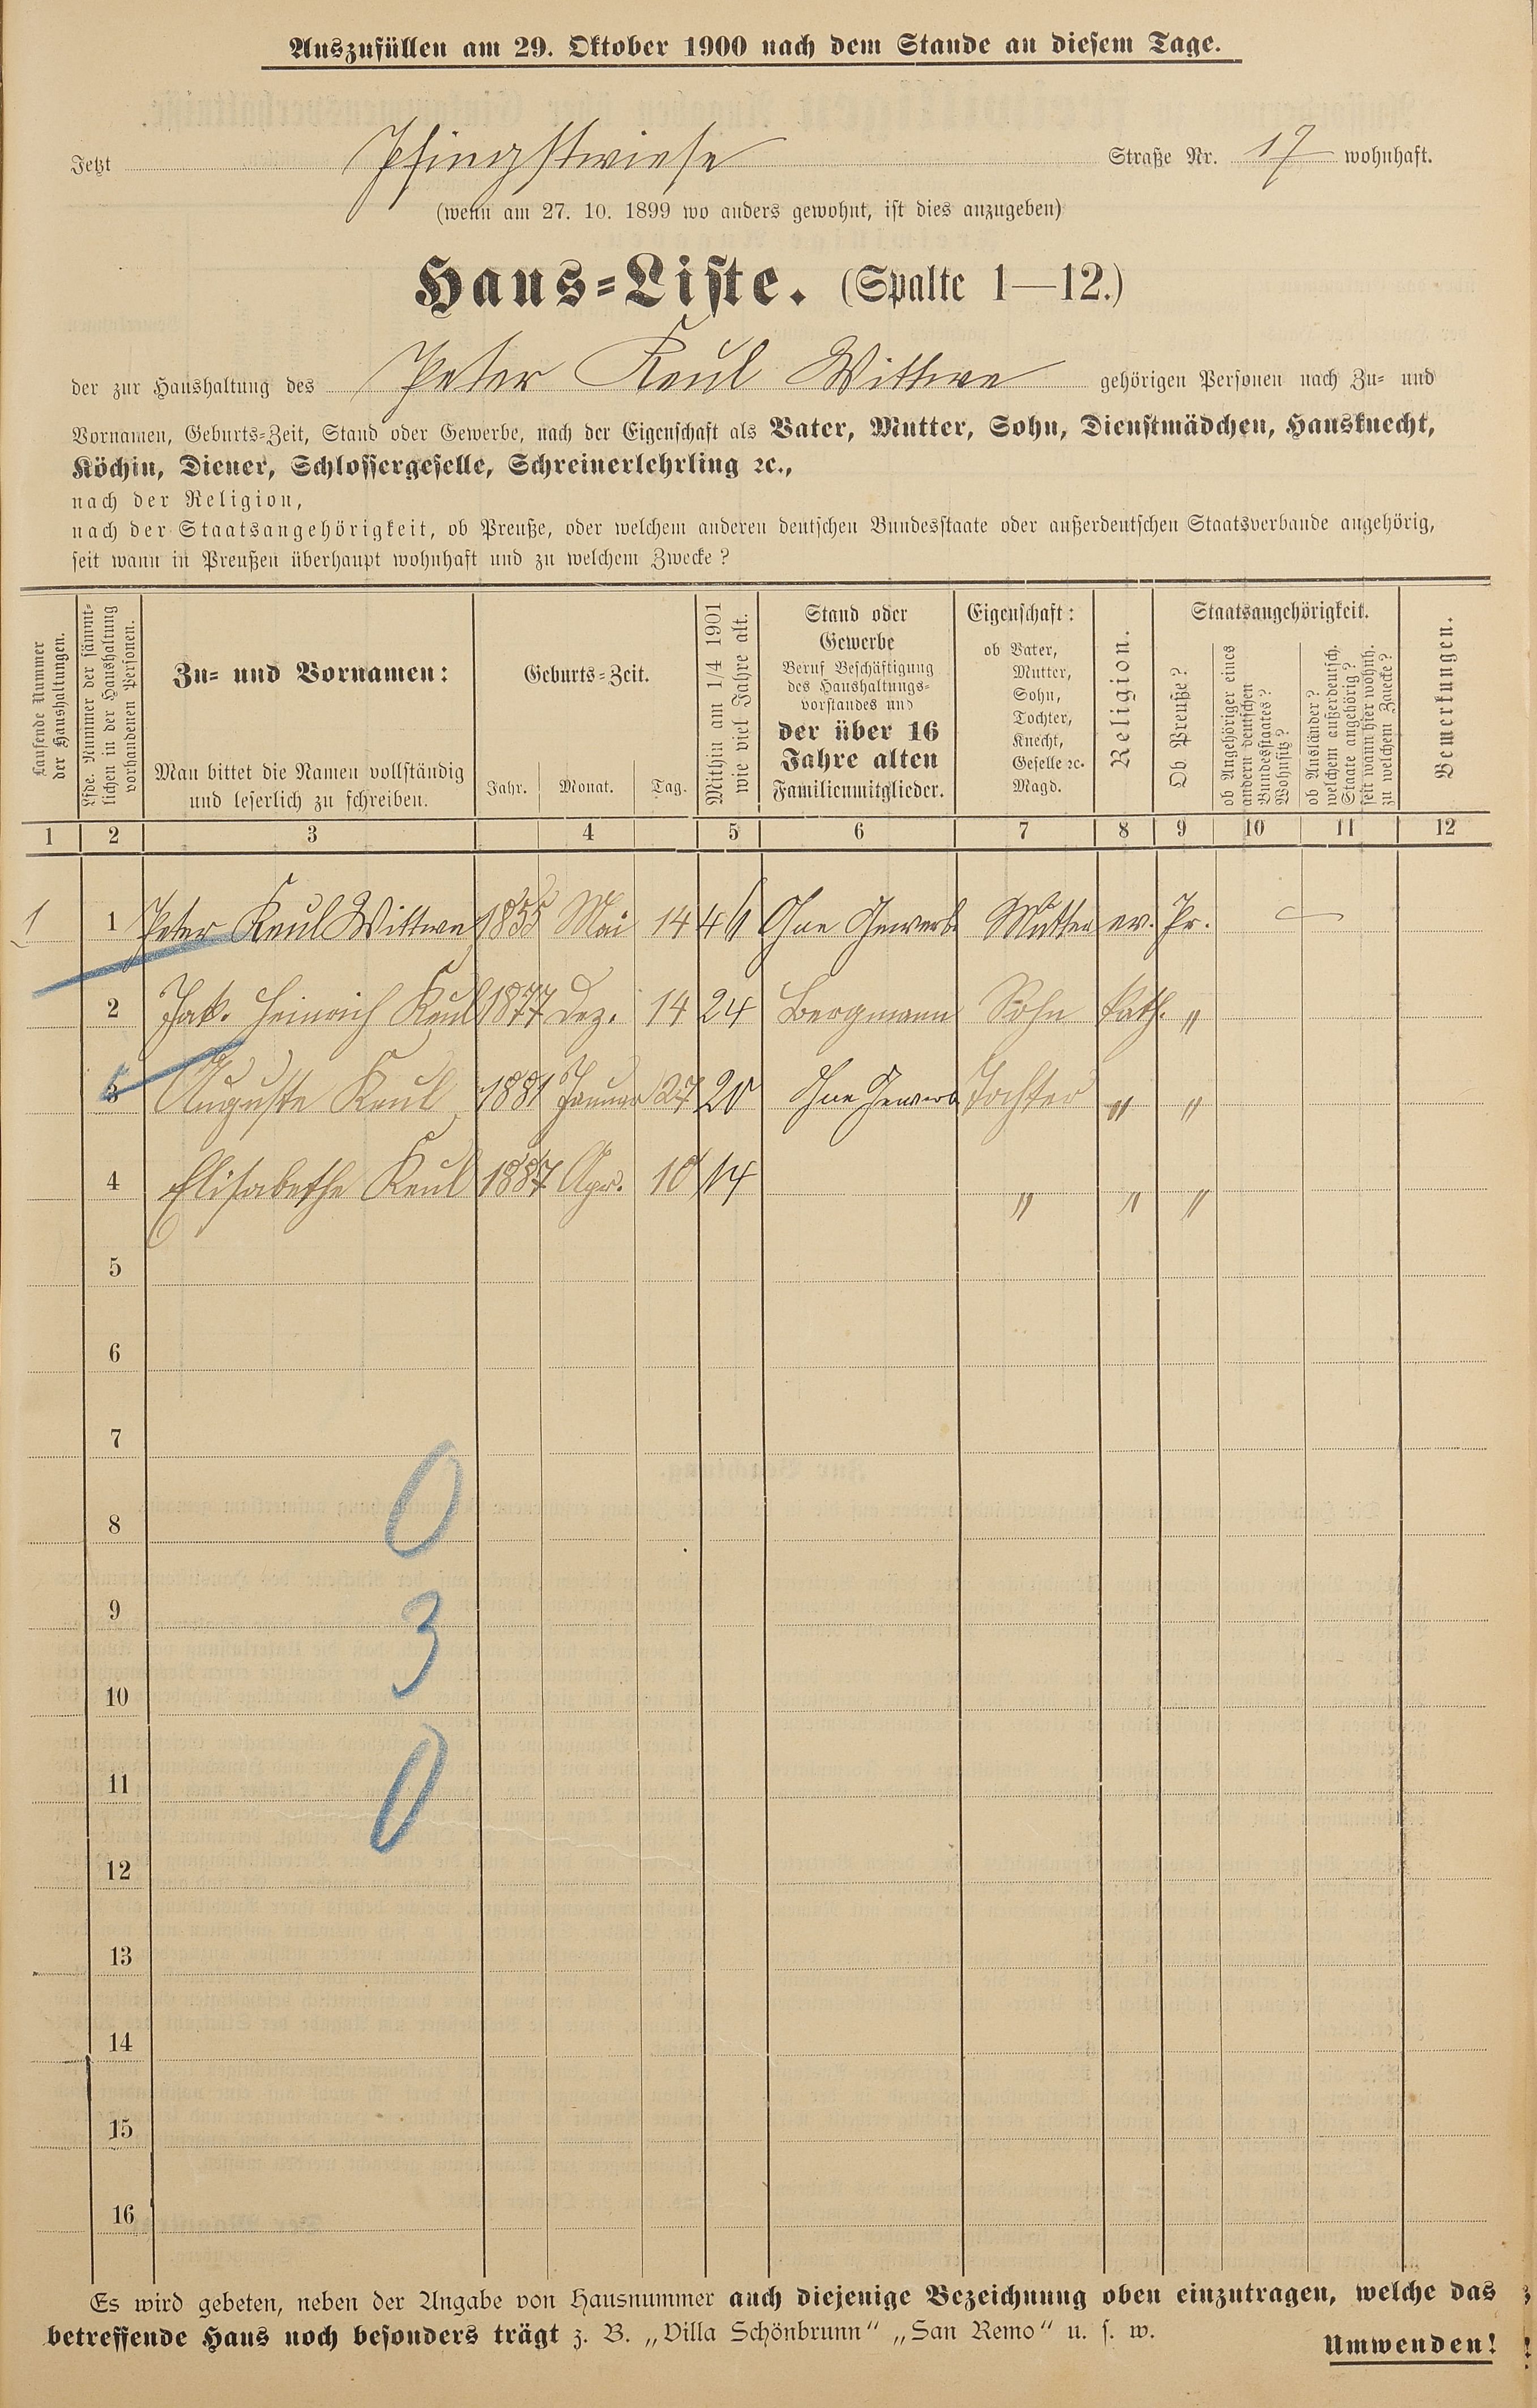 Auszufüllen am 29. Oktober 1900 nach dem Stande an diesem Tage.
Jetzt Pfingstwiese Straße Nr. 17 wohnhaft.
(wenn am 27. 10. 1899 wo anders gewohnt, ist dies anzugeben)
Haus-Liste. (Spalte 1—12.)
der zur Haushaltung des Peter Keul Wittwe gehörigen Personen nach Zu- und
Vornamen, Geburts-Zeit, Stand oder Gewerbe, nach der Eigenschaft als Vater, Mutter, Sohn, Dienstmädchen, Hausknecht,
Köchin, Diener, Schlossergeselle, Schreinerlehrling ꝛc.,
nach der Religion,
nach der Staatsangehörigkeit, ob Preuße, oder welchem anderen deutschen Bundesstaate oder außerdeutschen Staatsverbande angehörig,
seit wann in Preußen überhaupt wohnhaft und zu welchem Zwecke?
Laufende Nummer
der Haushaltungen.
Lfde. Nummer der sämmt-
lichen in der Haushaltung
vorhandenen Personen.
Zu- und Vornamen:
Man bittet die Namen vollständig
und leserlich zu schreiben.
Geburts-Zeit.
Jahr. Monat. Tag.
Mithin am 1/4 1901
wie viel Jahre alt.
Stand oder
Gewerbe
Beruf Beschäftigung
des Haushaltungs-
vorstandes und
der über 16
Jahre alten
Familienmitglieder.
Eigenschaft:
ob Vater,
Mutter,
Sohn,
Tochter,
Knecht,
Geselle ꝛc.
Magd.
Religion.
Staatsangehörigkeit.
Ob Preuße?
ob Angehöriger eines
andern deutschen
Bundesstaates?
Wohnsitz?
ob Ausländer?
welchem außerdeutsch.
Staate angehörig?
seit wann hier wohnh.
zu welchem Zwecke?
Bemerkungen.
1 2 3 4 5 6 7 8 9 10 11 12
1 1 Peter Keul Wittwe 1855 Mai 14 46 Ohne Gewerbe Mutter ev. Pr. —
2 Jak. Heinrich Keul 1877 Dez. 14 24 Bergmann Sohn kath. "
3 Auguste Keul 1881 Januar 27 20 Ohne Gewerb. Tochter " "
4 Elisabethe Keul 1887 Apr. 10 14 " " "
5
6
7
0
8
9
3
10
11
0
12
13
14
15
16
Es wird gebeten, neben der Angabe von Hausnummer auch diejenige Bezeichnung oben einzutragen, welche das
betreffende Haus noch besonders trägt z. B. „Villa Schönbrunn“ „San Remo“ u. s. w.
Umwenden!